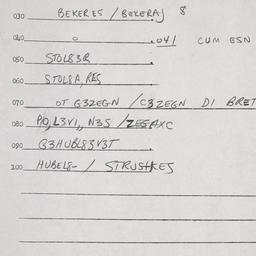 030 BEKERES / BEKERAJ 8
040 0 .041 CUM ESN
050 STOL83R .
060 STOL8A, RES
070 OT G3ZEGN / C3ZEGN DI BRET
080 PO, L3V1,, N3S / ZEGAXC
090 G3HUBL83V3T
100 HUBEL8- / STRUSHKES